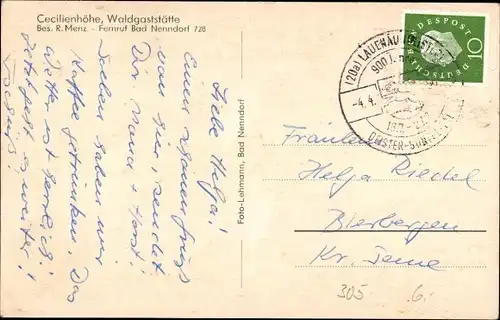 Cecilienhöhe, Waldgaststätte
Bes. R. Menz - Fernruf Bad Nenndorf 728
Liebe Helga!
Einen
von hier sendet
Dir, Mama + Horst
Soeben haben wir
Kaffee getrunken. Das
Wetter ist herrlich!
Jetzt geht's weiter!!
Foto-Lehmann, Bad Nenndorf
(20a) LAUENAU (DEISTER)
900 J.
-4.4.
DEISTER-SÜNTEL
DEUTSCHE BUNDESPOST
10
Fräulein
Helga Riedel
Bierbergen
Kr. Peine
305
6.-